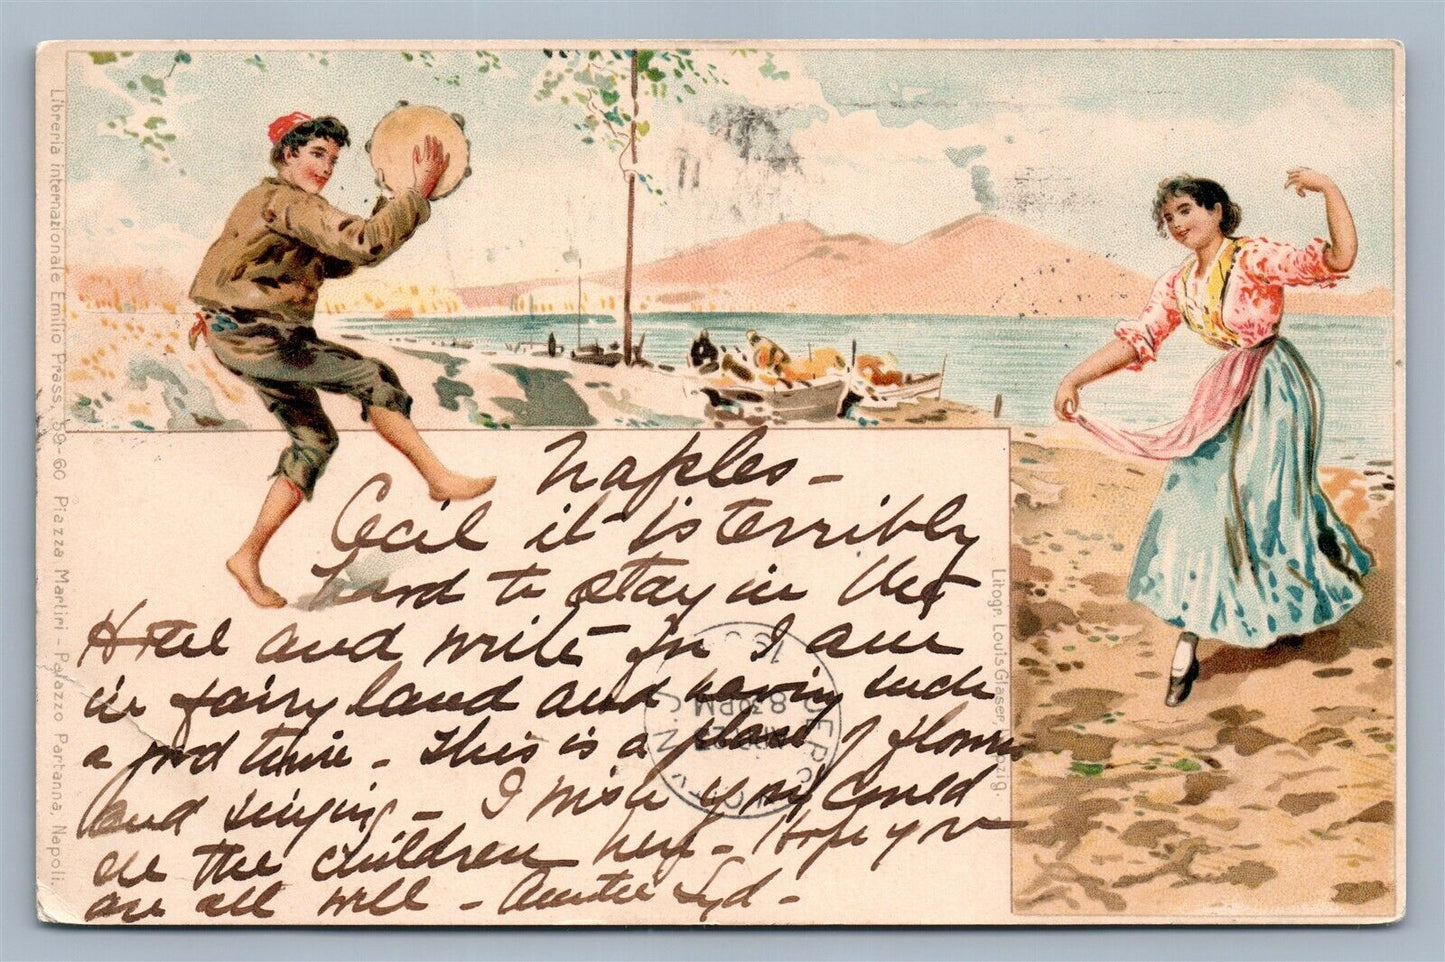 Naples -
Cecil it is terribly
hard to stay in the
Hotel and write for I am
in fairy land and having such
a good time - This is a place of flowers
and singing - I wish you could
see the children here - Hope you
are all well - Auntie Syd -
Libreria internazionale Emilio Prass, 59-60 Piazza Martiri - Palazzo Partanna, Napoli.
Litogr. Louis Glaser, Leipzig.
8.30PM